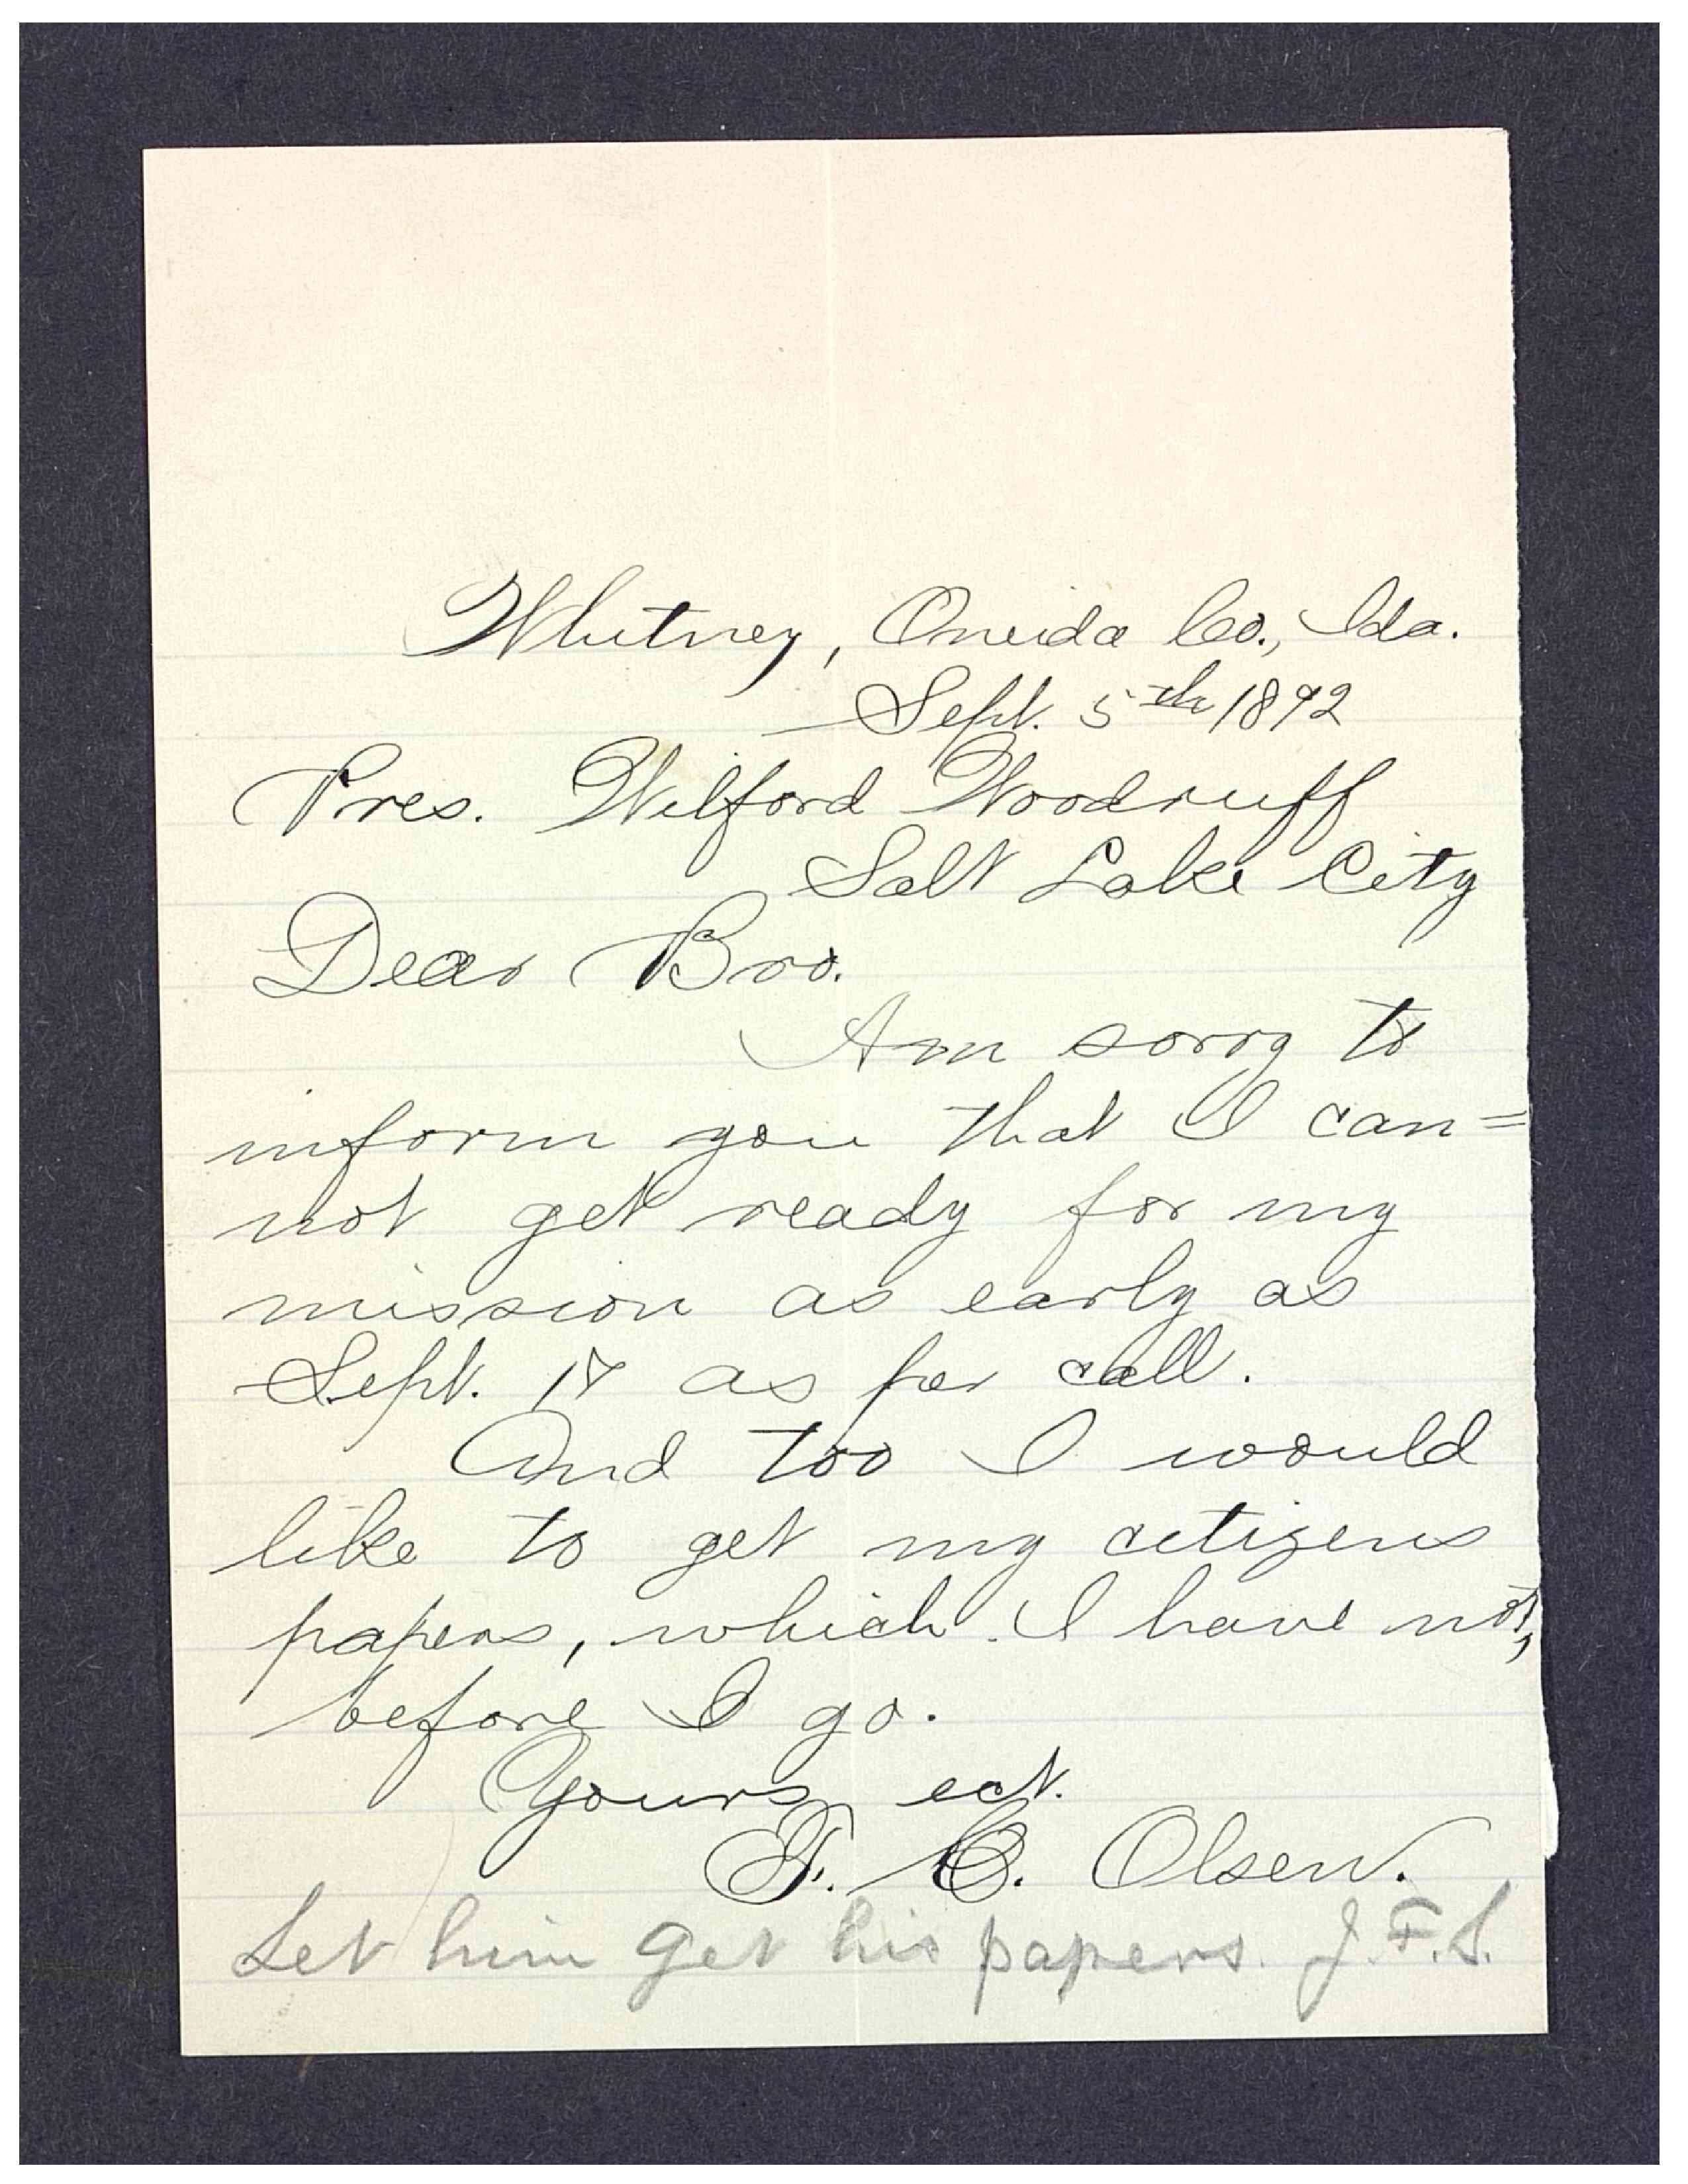 Whitney, Oneida Co., Ida.
Sept. 5th 1892
Pres. Wilford Woodruff
Salt Lake City
Dear Bro.
Am sorry to
inform you that I can=
not get ready for my
mission as early as
Sept. 17 as per call.
And too I would
like to get my citizens
papers, which I have not,
before I go.
Yours ect.
F. C. Olsen.
Let him get his papers. J.F.S.